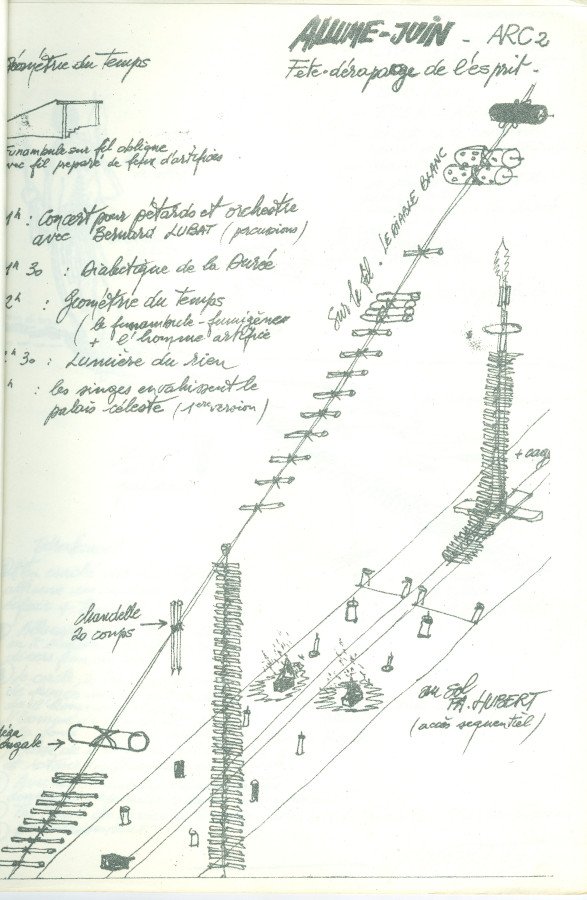 ALLUME-JUIN - ARC2
Fête-dérapage de l'esprit-
Géométrie du temps
Funambule sur fil oblique
avec fil préparé de feux d'artifices
1h : Concert pour pétards et orchestre
avec Bernard LUBAT (percussions)
1h 30 : Dialectique de la Durée
2h : Géométrie du temps
(le funambule-fumigène
+ l'homme artifice
h 30 : Lumière du rien
h : les singes envahissent le
palais céleste (1ere version)
Sur le fil . LE DIABLE BLANC
+ cag
chandelle
20 coups
au sol
HUBERT
(accès séquentiel)